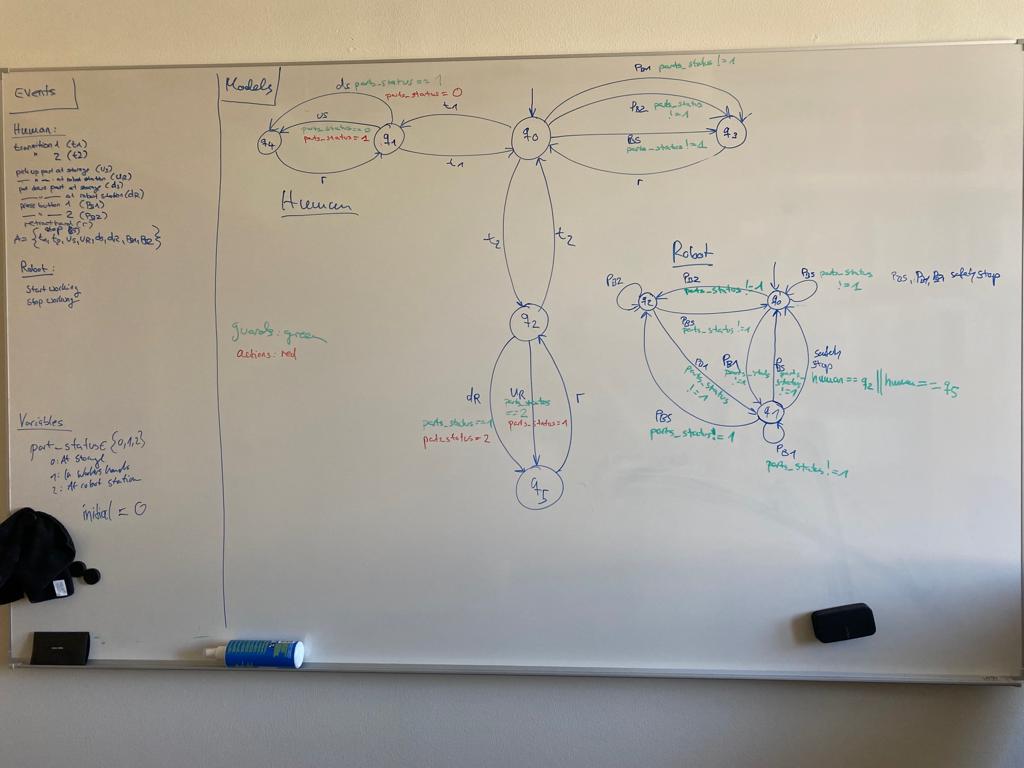 Events
Human:
transition 1 (t1)
" 2 (t2)
pick up part at storage (us)
— " — at robot station (UR)
put down part at storage (ds)
— " — at robot station (dR)
press button 1 (PB1)
— " — 2 (PB2)
retract hand (r)
stop BS
Robot:
Start working
Stop working
Variables
part_status ∈ {0,1,2}
0: At storage
1: In workers hands
2: At robot station
initial = 0
Models
Human
guards: green
actions: red
ds parts_status == 1
parts_status = 0
us
parts_status == 0
parts_status = 1
q4
q1
r
t1
t1
q0
PB1 parts_status != 1
PB2 parts_status
!= 1
BS
parts_status != 1
q3
r
t2
t2
q2
dR
parts_status == 1
parts_status = 2
UR
parts_status
== 2
parts_status = 1
r
q5
Robot
PB2
PB2
parts_status != 1
q2
PBS
parts_status != 1
q0
PBS parts_status
!= 1
PBS, PB1, PB2 safety stop
PB1
parts_status
!= 1
PB1
parts_status
!= 1
BS
parts_
status
!= 1
safety
stop
human == q2 || human == q5
q1
PBS
parts_status != 1
PB1
parts_status != 1